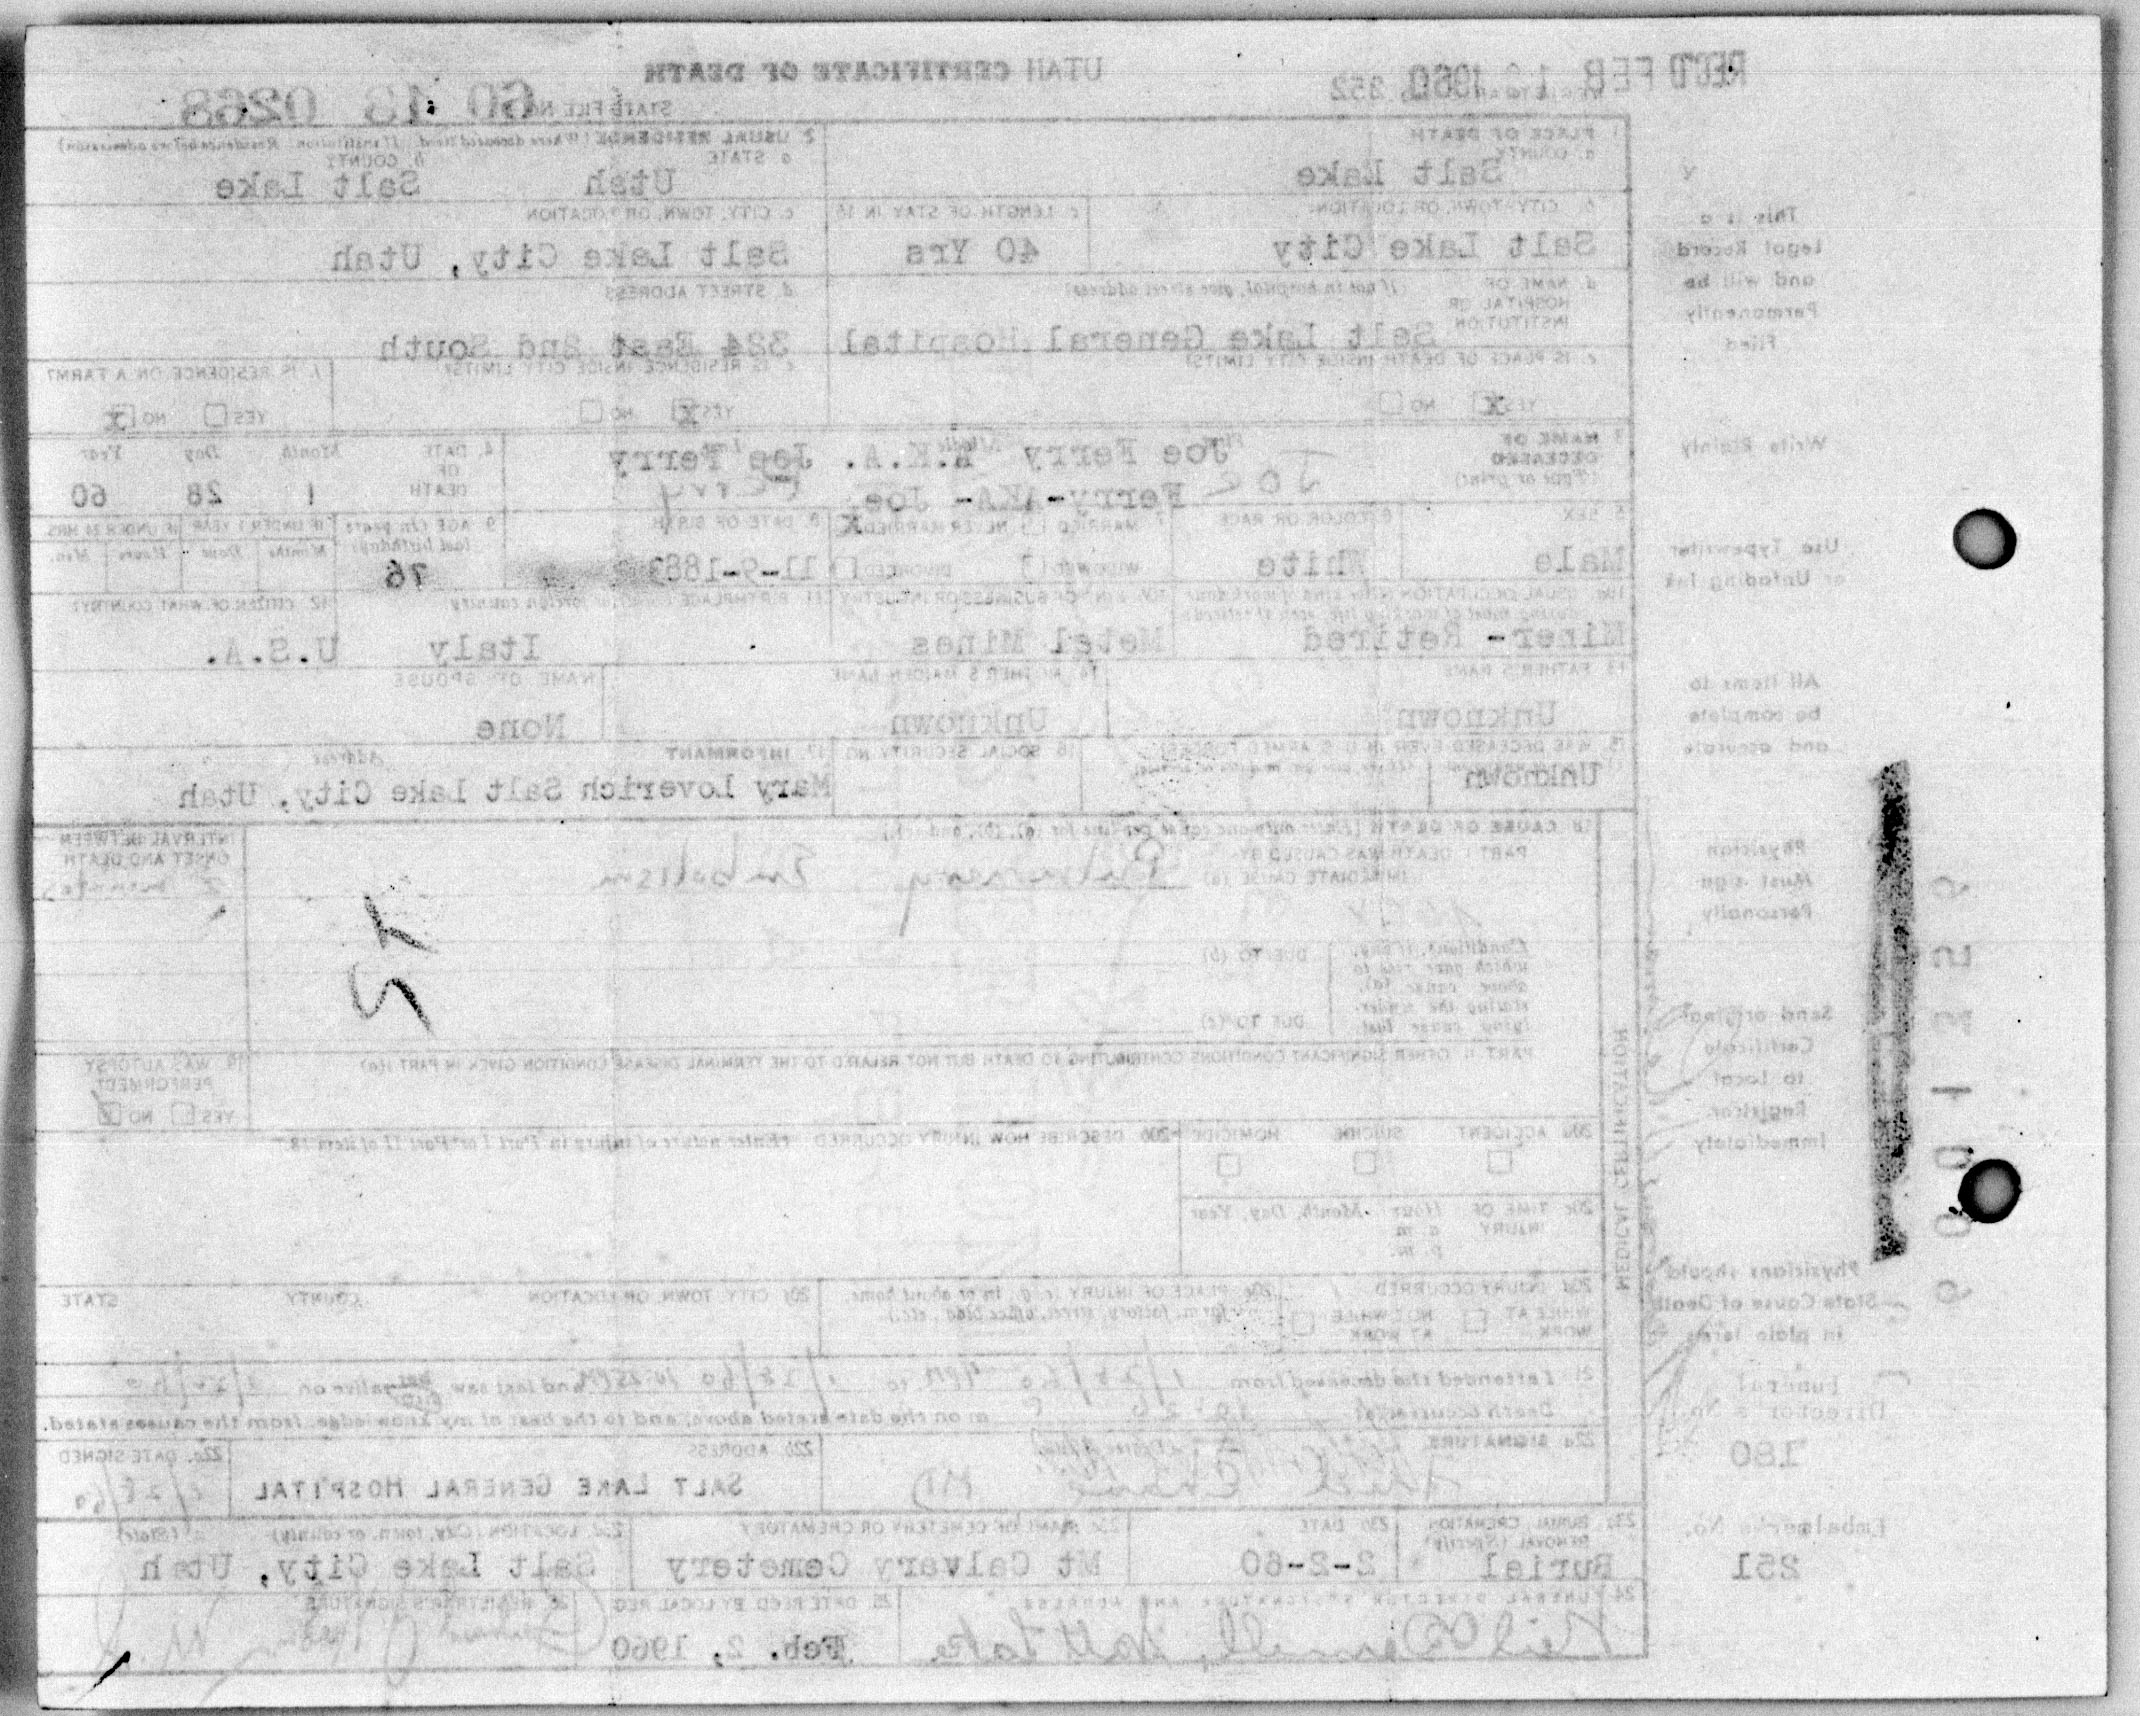 REC'D FEB 12 1960
REGISTRAR'S NO. 252
UTAH CERTIFICATE OF DEATH
STATE FILE NO. 60 18 0268
1. PLACE OF DEATH
a. COUNTY
Salt Lake
2. USUAL RESIDENCE (Where deceased lived. If institution: Residence before admission)
a. STATE
Utah
b. COUNTY
Salt Lake
b. CITY, TOWN, OR LOCATION
Salt Lake City
c. LENGTH OF STAY IN 1b
40 Yrs
c. CITY, TOWN, OR LOCATION
Salt Lake City, Utah
d. NAME OF HOSPITAL OR INSTITUTION (If not in hospital, give street address)
Salt Lake General Hospital
d. STREET ADDRESS
324 East 2nd South
e. IS PLACE OF DEATH INSIDE CITY LIMITS?
YES x NO
e. IS RESIDENCE INSIDE CITY LIMITS?
YES x NO
f. IS RESIDENCE ON A FARM?
YES NO x
3. NAME OF DECEASED (Type or print)
First Middle Last
Joe Ferry A.K.A. Joe Perry
Joe Ferry-AKA- Joe Perry
4. DATE OF DEATH
Month Day Year
1 28 60
5. SEX
Male
6. COLOR OR RACE
White
7. MARRIED NEVER MARRIED x
WIDOWED DIVORCED
8. DATE OF BIRTH
11-9-1883
9. AGE (In years last birthday)
76
IF UNDER 1 YEAR
Months Days
IF UNDER 24 HRS.
Hours Min.
10a. USUAL OCCUPATION (Give kind of work done during most of working life, even if retired)
Miner- Retired
10b. KIND OF BUSINESS OR INDUSTRY
Metal Mines
11. BIRTHPLACE (State or foreign country)
Italy
12. CITIZEN OF WHAT COUNTRY?
U.S.A.
13. FATHER'S NAME
Unknown
14. MOTHER'S MAIDEN NAME
Unknown
NAME OF SPOUSE
None
15. WAS DECEASED EVER IN U. S. ARMED FORCES?
Unknown
16. SOCIAL SECURITY NO.
17. INFORMANT Address
Mary Loverich Salt Lake City, Utah
18. CAUSE OF DEATH [Enter only one cause per line for (a), (b), and (c).]
PART I. DEATH WAS CAUSED BY:
IMMEDIATE CAUSE (a) Pulmonary Embolism
INTERVAL BETWEEN ONSET AND DEATH
minutes
Conditions, if any, which gave rise to above cause (a), stating the under-lying cause last.
DUE TO (b)
DUE TO (c)
PART II. OTHER SIGNIFICANT CONDITIONS CONTRIBUTING TO DEATH BUT NOT RELATED TO THE TERMINAL DISEASE CONDITION GIVEN IN PART I(a)
19. WAS AUTOPSY PERFORMED?
YES NO
20a. ACCIDENT SUICIDE HOMICIDE
20b. DESCRIBE HOW INJURY OCCURRED. (Enter nature of injury in Part I or Part II of item 18.)
20c. TIME OF INJURY Hour Month, Day, Year
a. m.
p. m.
20d. INJURY OCCURRED
WHILE AT WORK NOT WHILE AT WORK
20e. PLACE OF INJURY (e.g., in or about home, farm, factory, street, office bldg., etc.)
20f. CITY, TOWN, OR LOCATION COUNTY STATE
21. I attended the deceased from 1/28/60 to 1/28/60 and last saw alive on
Death occurred at m on the date stated above; and to the best of my knowledge, from the causes stated.
22a. SIGNATURE
MD
22b. ADDRESS
SALT LAKE GENERAL HOSPITAL
22c. DATE SIGNED
1/28/60
23a. BURIAL, CREMATION, REMOVAL (Specify)
Burial
23b. DATE
2-2-60
23c. NAME OF CEMETERY OR CREMATORY
Mt Calvary Cemetery
23d. LOCATION (City, town, or county) (State)
Salt Lake City, Utah
24. FUNERAL DIRECTOR'S SIGNATURE AND ADDRESS
Neil O'Donnell, Salt Lake
25. DATE REC'D BY LOCAL REG.
Feb. 2, 1960
26. REGISTRAR'S SIGNATURE
MEDICAL CERTIFICATION
This is a
Legal Record
and will be
Permanently
Filed
Write Plainly
Use Typewriter
or Unfading Ink
All items to
be complete
and accurate
Physician
Must sign
Personally
Send original
Certificate
to Local
Registrar
Immediately
Physicians should
State Cause of Death
in plain terms
Funeral
Director's No.
180
Embalmer's No.
251